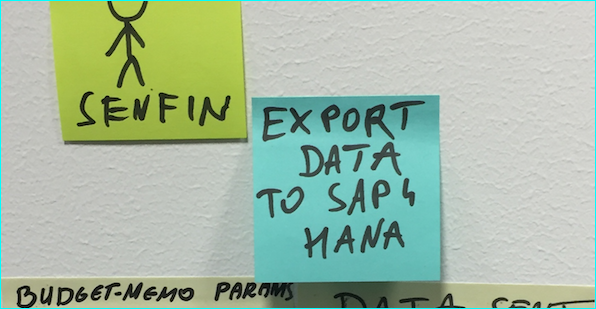 SENFIN
EXPORT
DATA
TO SAP 4
HANA
BUDGET-MEMO PARAMS
DATA SENT